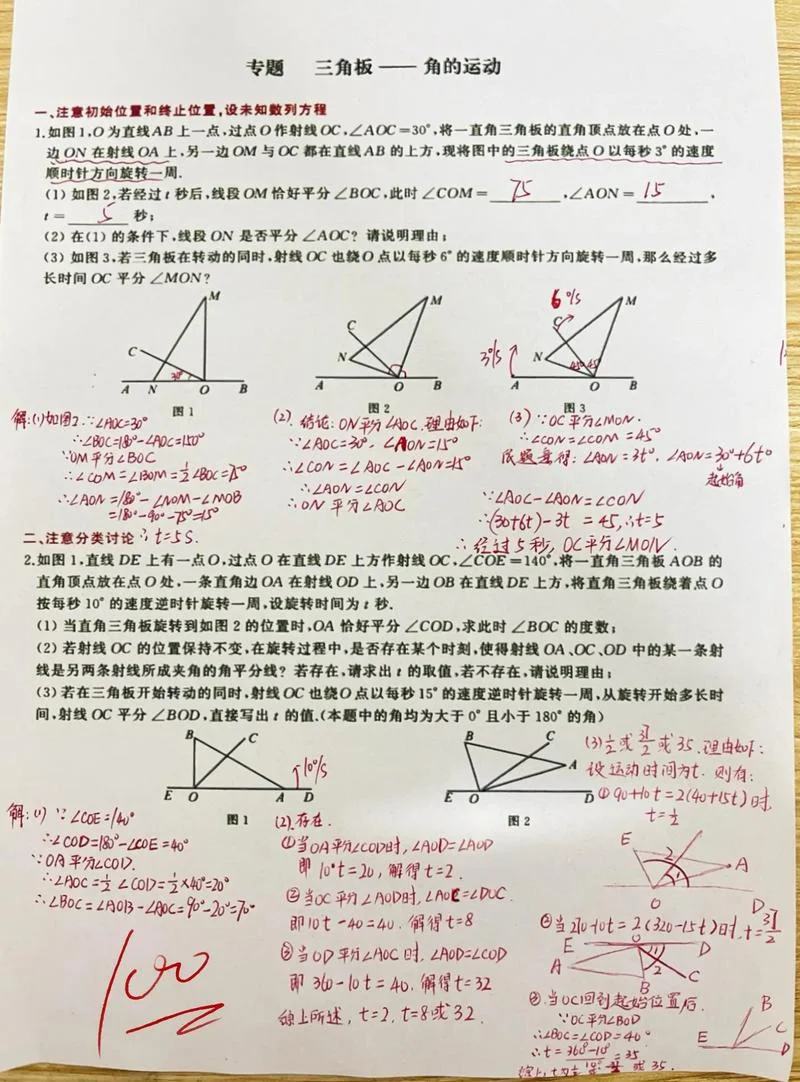 专题 三角板——角的运动
一、注意初始位置和终止位置,设未知数列方程
1.如图1,O为直线AB上一点,过点O作射线OC,∠AOC=30°,将一直角三角板的直角顶点放在点O处,一
边ON在射线OA上,另一边OM与OC都在直线AB的上方,现将图中的三角板绕点O以每秒3°的速度
顺时针方向旋转一周.
(1)如图2,若经过t秒后,线段OM恰好平分∠BOC,此时∠COM=75,∠AON=15,
t=5秒;
(2)在(1)的条件下,线段ON是否平分∠AOC?请说明理由;
(3)如图3,若三角板在转动的同时,射线OC也绕O点以每秒6°的速度顺时针方向旋转一周,那么经过多
长时间OC平分∠MON?
M C 30° A N O B
图1
M C N A O B
图2
6°/s M C 3°/s N 45° 45 A O B
图3
解:(1)如图2∵∠AOC=30°
∴∠BOC=180°-∠AOC=150°
∵OM平分∠BOC
∴∠COM=∠BOM=½∠BOC=75°
∴∠AON=180°-∠NOM-∠MOB
=180°-90°-75°=15°
∴t=5s.
(2).结论:ON平分∠AOC.理由如下:
∵∠AOC=30°.∠AON=15°
∴∠CON=∠AOC-∠AON=15°
∴∠AON=∠CON
∴ON平分∠AOC
(3)∵OC平分∠MON.
∴∠CON=∠COM=45°
由题意得:∠AON=3t°.∠AON=30°+6t°
起始角
∵∠AOC-∠AON=∠CON
∴(30+6t)-3t=45,∴t=5
∴经过5秒,OC平分∠MON.
二、注意分类讨论
2.如图1,直线DE上有一点O,过点O在直线DE上方作射线OC,∠COE=140°,将一直角三角板AOB的
直角顶点放在点O处,一条直角边OA在射线OD上,另一边OB在直线DE上方,将直角三角板绕着点O
按每秒10°的速度逆时针旋转一周,设旋转时间为t秒.
(1)当直角三角板旋转到如图2的位置时,OA恰好平分∠COD,求此时∠BOC的度数;
(2)若射线OC的位置保持不变,在旋转过程中,是否存在某个时刻,使得射线OA、OC、OD中的某一条射
线是另两条射线所成夹角的角平分线?若存在,请求出t的取值,若不存在,请说明理由;
(3)若在三角板开始转动的同时,射线OC也绕O点以每秒15°的速度逆时针旋转一周,从旋转开始多长时
间,射线OC平分∠BOD,直接写出t的值.(本题中的角均为大于0°且小于180°的角)
B C 10°/s E O A D
图1
B C A E O D
图2
解:(1)∵∠COE=140°
∴∠COD=180°-∠COE=40°
∵OA平分∠COD.
∴∠AOC=½∠COD=½×40°=20°
∴∠BOC=∠AOB-∠AOC=90°-20°=70°
100
(2).存在.
①当OA平分∠COD时,∠AOD=∠AOD
即10°t=20,解得t=2.
②当OC平分∠AOD时,∠AOC=∠DOC.
即10t-40=40.解得t=8
③当OD平分∠AOC时,∠AOD=∠COD
即360-10t=40.解得t=32
综上所述,t=2.t=8或32.
(3)½或31/2或35.理由如下:
设运动时间为t.则有:
①90+10t=2(40+15t)时,
t=½
E 2 1 A O D
②当270-10t=2(320-15t)时,t=37/2
E O D A B C 1 2
③.当OC回到起始位置后.
∵OC平分∠BOD
∴∠BOC=∠COD=40°
∴t=360°-10°/10°=35
B C E D